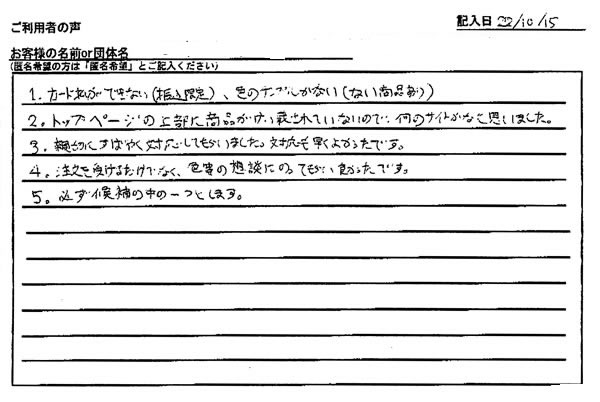 ご利用者の声
記入日 22/10/15
お客様の名前or団体名
(匿名希望の方は「匿名希望」とご記入ください)
1. カード払ができない(振込限定)、色のサンプルがない(ない商品あり)
2. トップページの上部に商品が載されていないので、何のサイトかなと思いました。
3. 親切にすばやく対応してもらいました。対応も早くよかったです。
4. 注文を受けるだけでなく、色等の相談にのってもらい良かったです。
5. 必ず候補の中の一つとします。